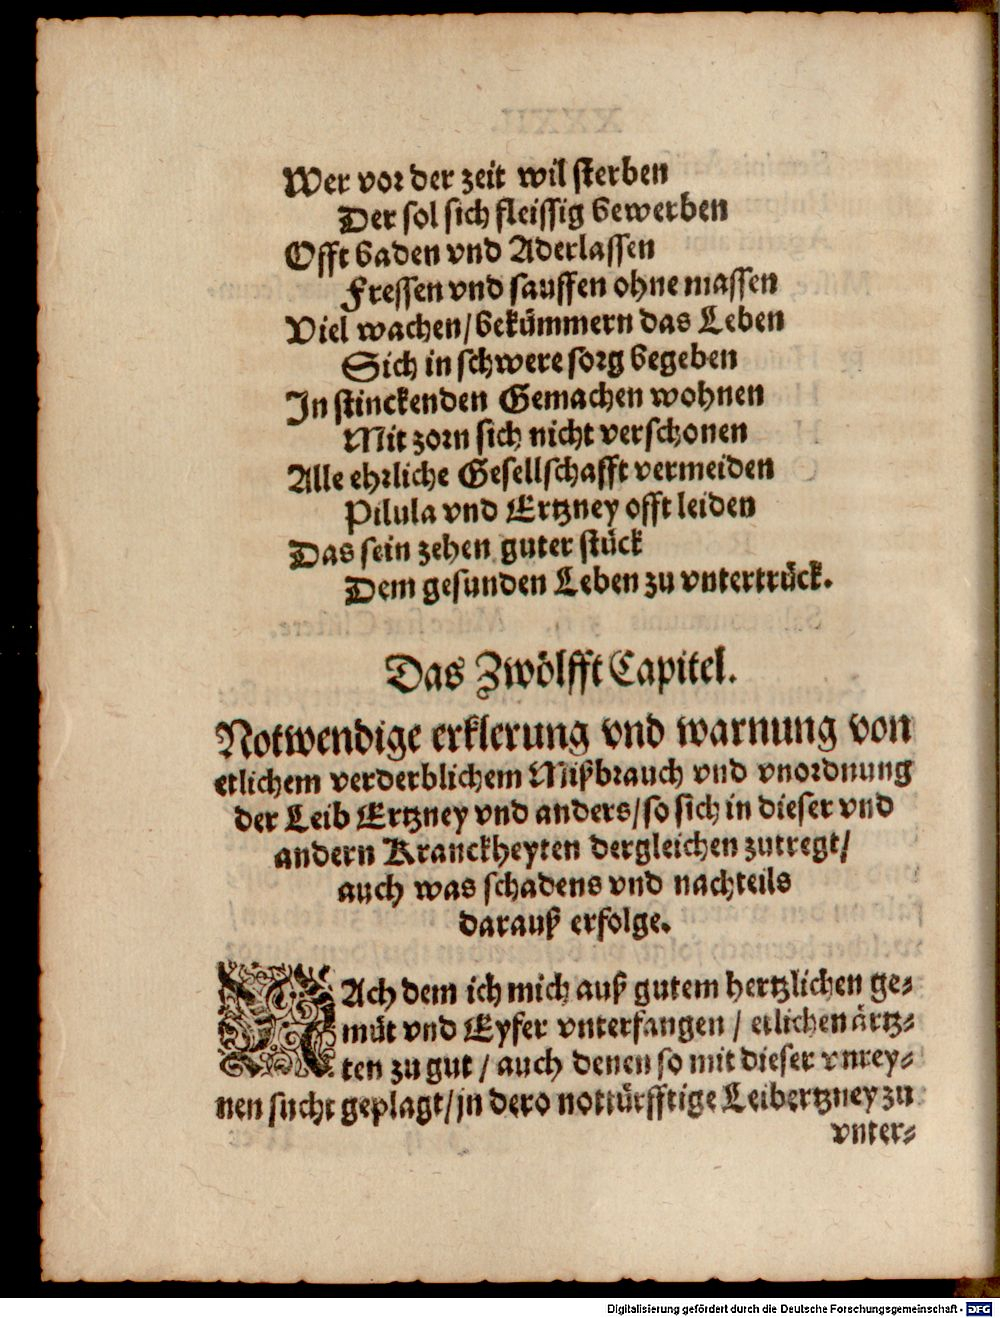 Wer vor der zeit wil sterben
Der sol sich fleissig bewerben
Offt baden vnd Aderlassen
Fressen vnd sauffen ohne massen
Viel wachen/bekümmern das Leben
Sich in schwere sorg begeben
In stinckenden Gemachen wohnen
Mit zorn sich nicht verschonen
Alle ehrliche Gesellschafft vermeiden
Pilula vnd Ertzney offt leiden
Das sein zehen guter stück
Dem gesunden Leben zu vntertrück.
Das Zwölfft Capitel.
Notwendige erklerung vnd warnung von
etlichem verderblichem Mißbrauch vnd vnordnung
der Leib Ertzney vnd anders/so sich in dieser vnd
andern Kranckheyten dergleichen zutregt/
auch was schadens vnd nachteils
darauß erfolge.
NAch dem ich mich auß gutem hertzlichen ge-
müt vnd Eyfer vnterfangen / etlichen ärtz-
ten zu gut / auch denen so mit dieser vnrey-
nen sucht geplagt/jn dero nottürfftige Leibertzney zu
vnter-
Digitalisierung gefördert durch die Deutsche Forschungsgemeinschaft - DFG